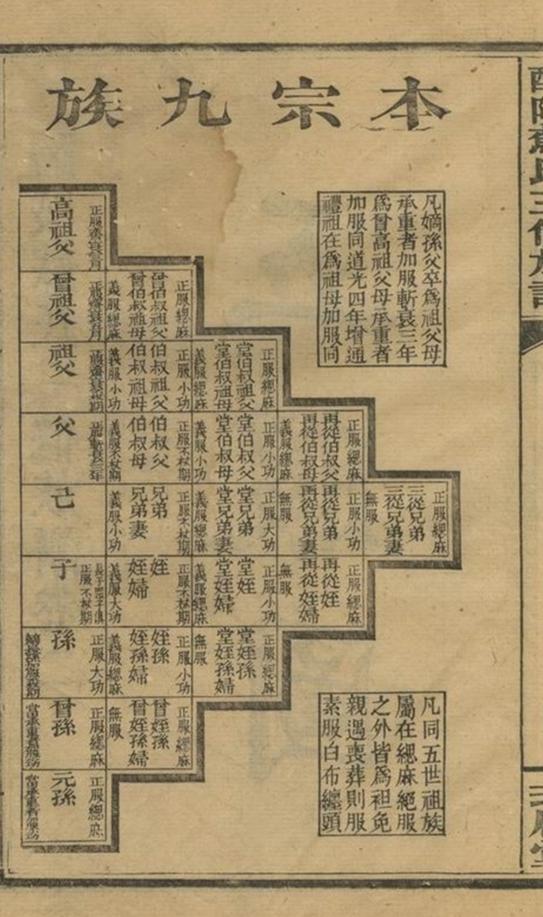 本宗九族
凡嫡孫父卒爲祖父母
承重者加服斬衰三年
爲曾高祖父母承重者
加服同道光四年增通
禮祖在爲祖母加服同
高祖父
正服總麻
曾伯叔祖父
曾伯叔祖母
義服總麻
曾祖父
正服總麻
堂伯叔祖父
堂伯叔祖母
義服總麻
正服小功
伯叔祖父
伯叔祖母
義服小功
祖父
正服總麻
再從伯叔父
再從伯叔母
義服總麻
正服小功
堂伯叔父
堂伯叔母
義服小功
正服不杖期
伯叔父
伯叔母
義服不杖期
父
正服總麻
三從兄弟
三從兄弟妻
無服
正服小功
再從兄弟
再從兄弟妻
無服
正服大功
堂兄弟
堂兄弟妻
義服總麻
正服不杖期
兄弟
兄弟妻
義服小功
己
正服總麻
再從姪
再從姪婦
無服
正服小功
堂姪
堂姪婦
義服總麻
正服不杖期
姪
姪婦
義服大功
正服不杖期
子
正服總麻
堂姪孫
堂姪孫婦
無服
正服小功
姪孫
姪孫婦
義服總麻
正服大功
孫
正服總麻
曾姪孫
曾姪孫婦
無服
正服總麻
曾孫
正服總麻
元孫
凡同五世祖族
屬在緦麻絕服
之外皆爲袒免
親遇喪葬則服
素服白布纏頭